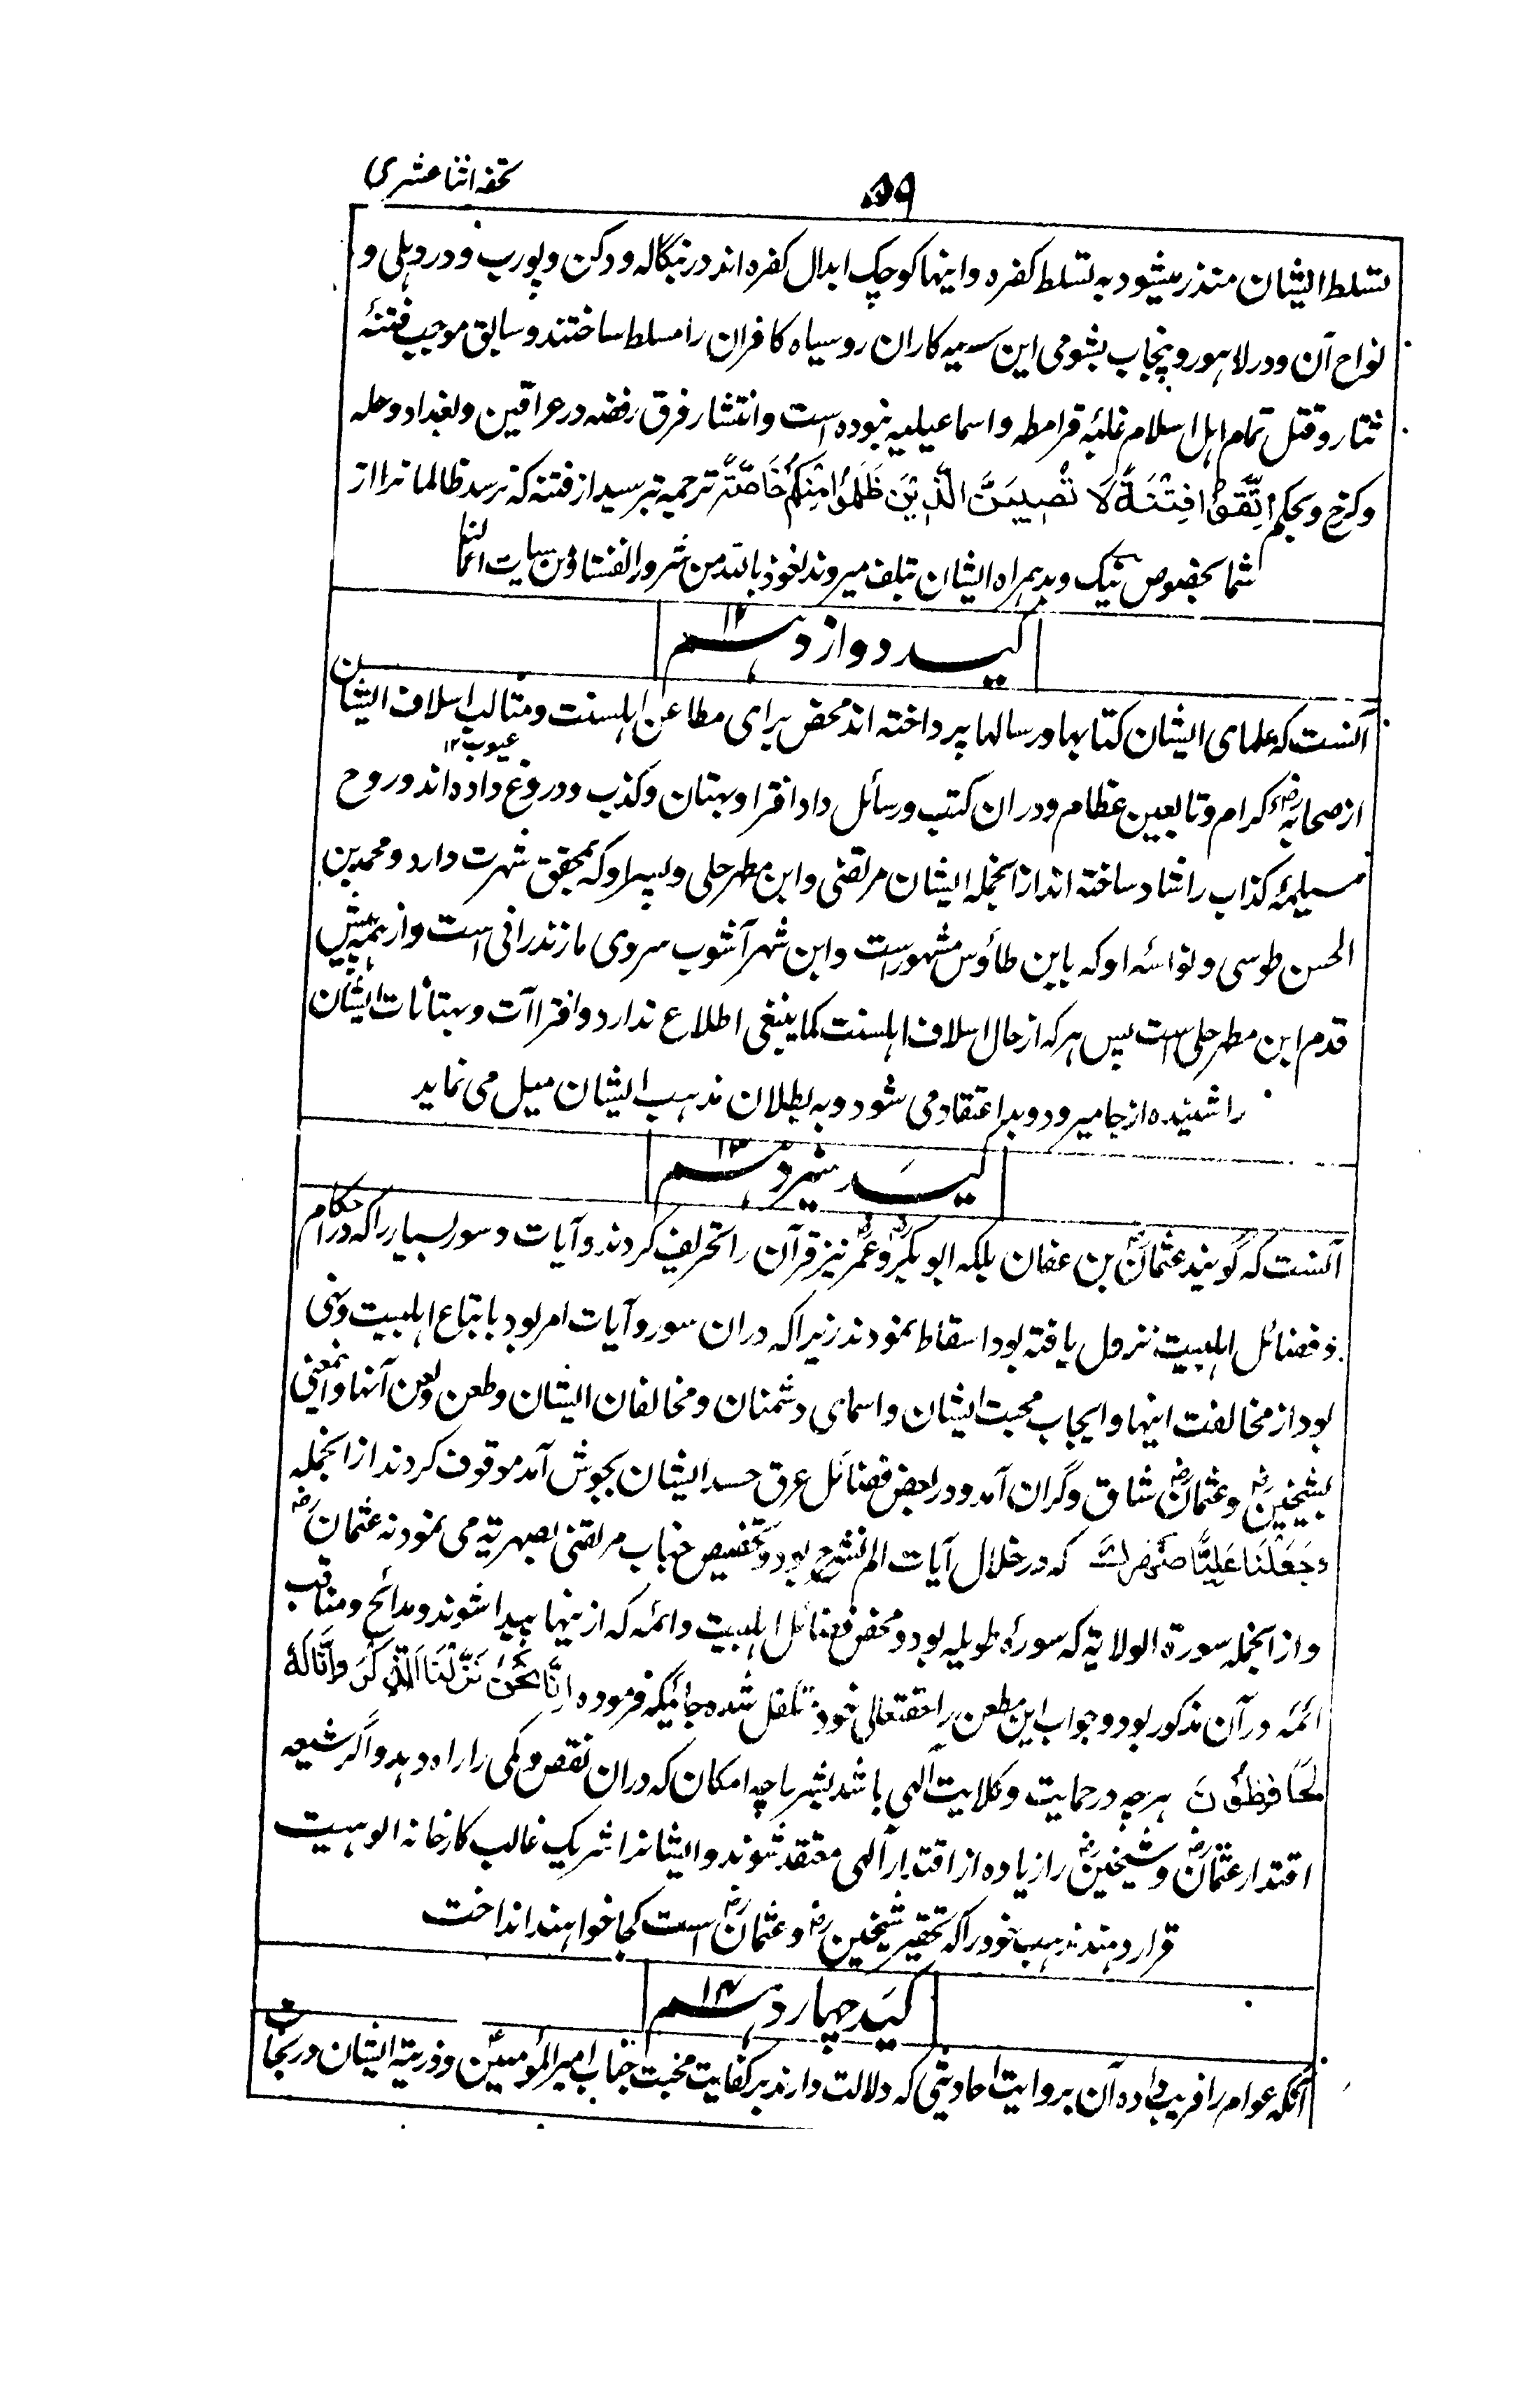 ۵۹
تحفه اثنا عشری
تسلط ایشان منذر میشود به تسلط کفره و اینها کوچک ابدال کفره اند در بنگاله و دکن و پورب و در دهلی و
نواح آن و در لاهور و پنجاب بشومی این سیه کاران رو سیاه کافران را مسلط ساختند و سابق موجب فتنهٔ
تتار و قتل تمام اهل اسلام غلبهٔ قرامطه و اسماعیلیه نبوده است و انتشار فرق رفضه در عراقین و بغداد و حله
و کرخ و بحکم اِتَّقُوْا فِتْنَةً لَا تُصِيبَنَّ الَّذِيْنَ ظَلَمُوْا مِنْكُمْ خَاصَّةً ترجمه بترسید از فتنه که نرسد ظالمانرا از
شما بخصوص نیک و بد همراه ایشان تلف میروند نعوذ بالله من شرور انفسنا و من سیات اعمالنا
کید دوازدهم ۱۲
آنست که علمای ایشان کتابها و رسالها پرداخته اند محض برای مطاعن اهلسنت و مثالب اسلاف ایشان
عیوب ۱۲
از صحابهٔ رض کرام و تابعین عظام و دران کتب و رسائل داد افترا و بهتان و کذب و دروغ داده اند و روح
مسیلمهٔ کذاب را شاد ساخته اند از انجمله ایشان مرتضی و ابن مطهر حلی و پسر او که بمحقق شهرت دارد و محمد بن
الحسن طوسی و نواسهٔ او که بابن طاؤس مشهور است و ابن شهر آشوب سروی مازندرانی است و از همه پیش
قدم ابن مطهر حلی است پس هر که از حال اسلاف اهلسنت کما ینبغی اطلاع ندارد و افتراآت و بهتانات ایشان
را شنیده از جا میرود و بد اعتقاد می شود و به بطلان مذهب ایشان میل می نماید
کید سیزدهم ۱۳
آنست که گویند عثمان رض بن عفان بلکه ابو بکر رض و عمر رض نیز قرآن را تحریف کردند و آیات و سور بسیار را که در احکام
و فضائل اهلبیت نزول یافته بود اسقاط نمودند زیرا که دران سور و آیات امر بود باتباع اهلبیت و نهی
بود از مخالفت اینها و ایجاب محبت ایشان و اسمای دشمنان و مخالفان ایشان و طعن و لعن آنها و اینمعنی
بشیخین رض و عثمان رض شاق و گران آمد و در بعض فضائل عرق حسد ایشان بجوش آمد موقوف کردند از انجمله
وَجَعَلْنَا عَلِيًّا صِهْرَكَ که در خلال آیات الم نشرح بود و تخصیص جناب مرتضی بصهریة می نمود نه عثمان رض
و از انجمله سورة الولایة که سورهٔ طویله بود و محض فضائل اهلبیت و ائمه که از اینها پیدا شوند و مدائح و مناقب
ائمه در آن مذکور بود و جواب این مطعن را حقتعالی خود متکفل شده جائیکه فرموده اِنَّا نَحْنُ نَزَّلْنَا الذِّكْرَ وَاِنَّا لَهُ
لَحَافِظُوْنَ هر چه در حمایت و کلایت الهی باشد بشر را چه امکان که دران نقص و کمی را راه دهد و اگر شیعه
اقتدار عثمان رض و شیخین رض را زیاده از اقتدار الهی معتقد شوند و ایشانرا شریک غالب کارخانه الوهیت
قرار دهند مذهب خود را که تحقیر شیخین رض و عثمان رض است کجا خواهند انداخت
کید چهاردهم ۱۴
آنکه عوام را فریب داده آن بروایت احادیثی که دلالت دارند بر کفایت محبت جناب امیر المؤمنین ع و ذریة ایشان در نجات